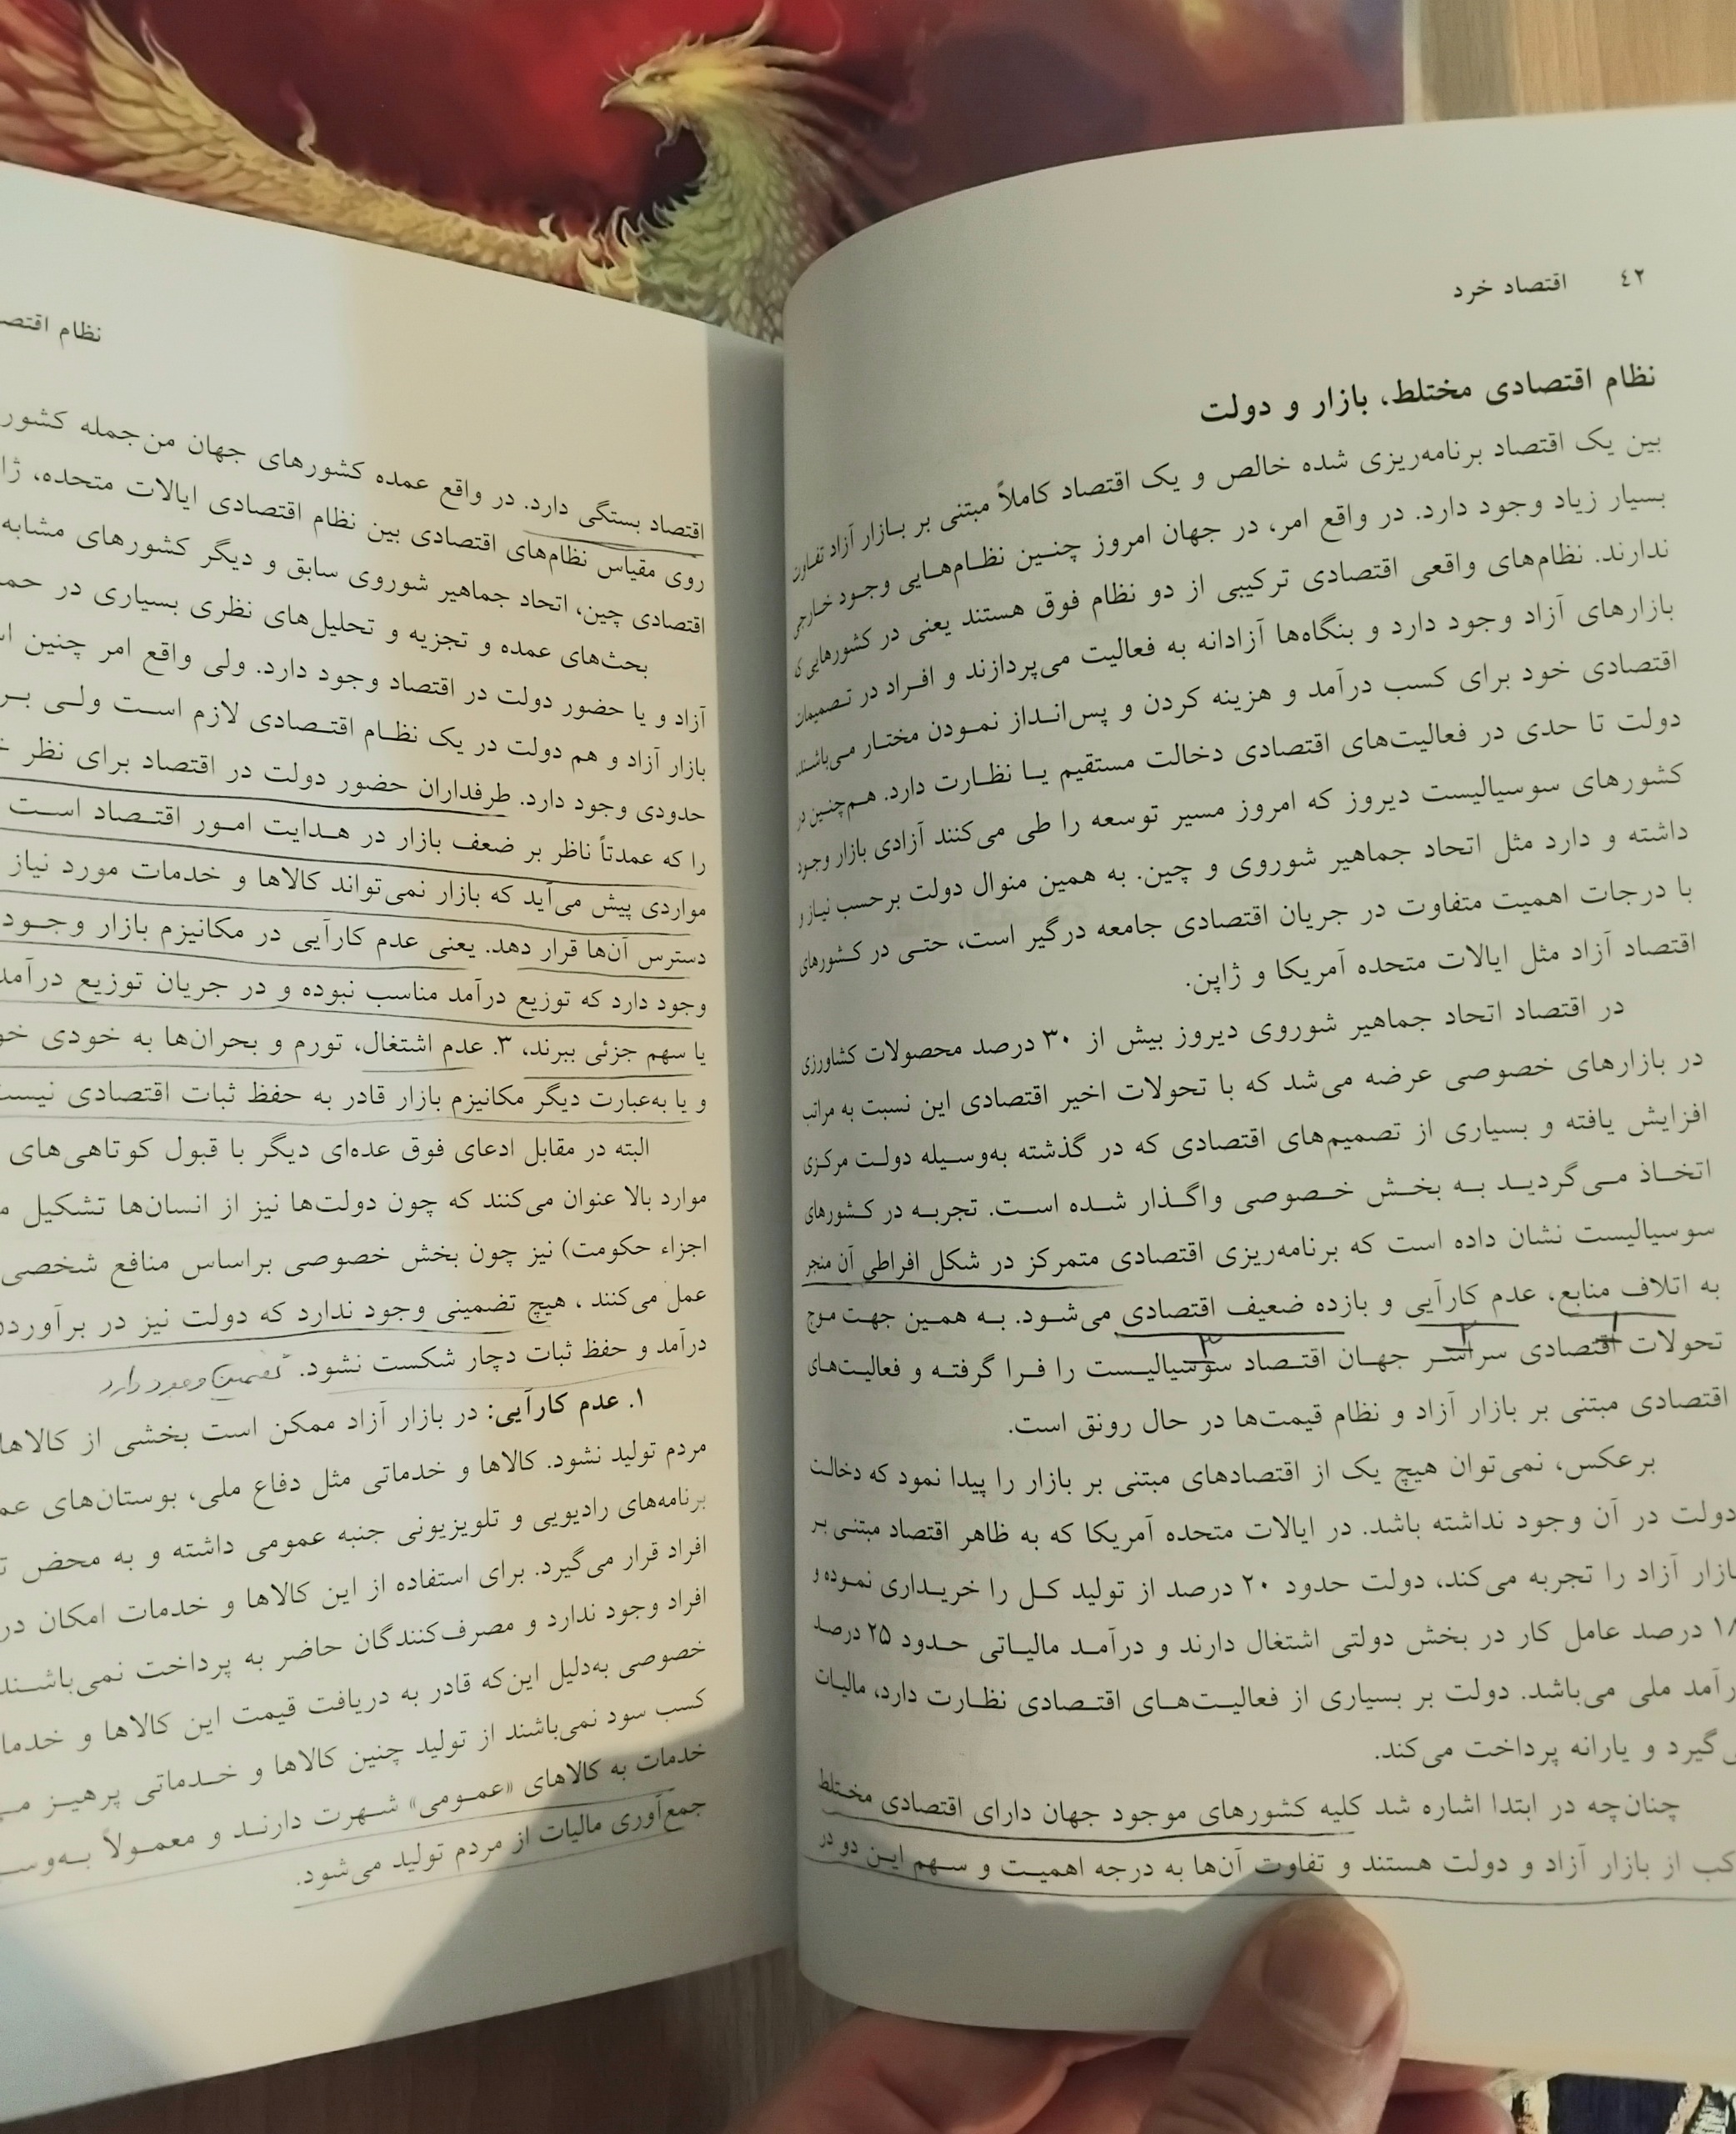 ۴۲ اقتصاد خرد
نظام اقتصادی مختلط، بازار و دولت
بین یک اقتصاد برنامه‌ریزی شده خالص و یک اقتصاد کاملاً مبتنی بر بازار آزاد تفاوت
بسیار زیاد وجود دارد. در واقع امر، در جهان امروز چنین نظام‌هایی وجود خارجی
ندارند. نظام‌های واقعی اقتصادی ترکیبی از دو نظام فوق هستند یعنی در کشورهایی
بازارهای آزاد وجود دارد و بنگاه‌ها آزادانه به فعالیت می‌پردازند و افراد در تصمیمات
اقتصادی خود برای کسب درآمد و هزینه کردن و پس‌انداز نمودن مختار می‌باشند،
دولت تا حدی در فعالیت‌های اقتصادی دخالت مستقیم یا نظارت دارد. هم‌چنین در
کشورهای سوسیالیست دیروز که امروز مسیر توسعه را طی می‌کنند آزادی بازار وجود
داشته و دارد مثل اتحاد جماهیر شوروی و چین. به همین منوال دولت برحسب نیاز و
با درجات اهمیت متفاوت در جریان اقتصادی جامعه درگیر است، حتی در کشورهای
اقتصاد آزاد مثل ایالات متحده آمریکا و ژاپن.
در اقتصاد اتحاد جماهیر شوروی دیروز بیش از ۳۰ درصد محصولات کشاورزی
در بازارهای خصوصی عرضه می‌شد که با تحولات اخیر اقتصادی این نسبت به مراتب
افزایش یافته و بسیاری از تصمیم‌های اقتصادی که در گذشته به‌وسیله دولت مرکزی
اتخاذ می‌گردید به بخش خصوصی واگذار شده است. تجربه در کشورهای
سوسیالیست نشان داده است که برنامه‌ریزی اقتصادی متمرکز در شکل افراطی آن منجر
به اتلاف منابع، عدم کارآیی و بازده ضعیف اقتصادی می‌شود. به همین جهت موج
تحولات اقتصادی سراسر جهان اقتصاد سوسیالیست را فرا گرفته و فعالیت‌های
اقتصادی مبتنی بر بازار آزاد و نظام قیمت‌ها در حال رونق است.
برعکس، نمی‌توان هیچ یک از اقتصادهای مبتنی بر بازار را پیدا نمود که دخالت
دولت در آن وجود نداشته باشد. در ایالات متحده آمریکا که به ظاهر اقتصاد مبتنی بر
بازار آزاد را تجربه می‌کند، دولت حدود ۲۰ درصد از تولید کل را خریداری نموده و
۱۸ درصد عامل کار در بخش دولتی اشتغال دارند و درآمد مالیاتی حدود ۲۵ درصد
درآمد ملی می‌باشد. دولت بر بسیاری از فعالیت‌های اقتصادی نظارت دارد، مالیات
می‌گیرد و یارانه پرداخت می‌کند.
چنان‌چه در ابتدا اشاره شد کلیه کشورهای موجود جهان دارای اقتصادی مختلط
از بازار آزاد و دولت هستند و تفاوت آن‌ها به درجه اهمیت و سهم این دو در
نظام
اقتصاد بستگی دارد. در واقع عمده کشورهای جهان من‌جمله
روی مقیاس نظام‌های اقتصادی بین نظام اقتصادی ایالات متحده،
اقتصادی چین، اتحاد جماهیر شوروی سابق و دیگر کشورهای مشابه
بحث‌های عمده و تجزیه و تحلیل‌های نظری بسیاری در
آزاد و یا حضور دولت در اقتصاد وجود دارد. ولی واقع امر چنین
بازار آزاد و هم دولت در یک نظام اقتصادی لازم است ولی
حدودی وجود دارد. طرفداران حضور دولت در اقتصاد برای نظر
را که عمدتاً ناظر بر ضعف بازار در هدایت امور اقتصاد است
مواردی پیش می‌آید که بازار نمی‌تواند کالاها و خدمات مورد نیاز
دسترس آن‌ها قرار دهد. یعنی عدم کارآیی در مکانیزم بازار
وجود دارد که توزیع درآمد مناسب نبوده و در جریان توزیع
یا سهم جزئی ببرند، ۳. عدم اشتغال، تورم و بحران‌ها به خودی
و یا به‌عبارت دیگر مکانیزم بازار قادر به حفظ ثبات اقتصادی
البته در مقابل ادعای فوق عده‌ای دیگر با قبول کوتاهی‌های
موارد بالا عنوان می‌کنند که چون دولت‌ها نیز از انسان‌ها تشکیل
اجزاء حکومت) نیز چون بخش خصوصی براساس منافع شخصی
عمل می‌کنند، هیچ تضمینی وجود ندارد که دولت نیز در
درآمد و حفظ ثبات دچار شکست نشود. تضمین وجود دارد
۱. عدم کارآیی: در بازار آزاد ممکن است بخشی از
مردم تولید نشود. کالاها و خدماتی مثل دفاع ملی، بوستان‌های
برنامه‌های رادیویی و تلویزیونی جنبه عمومی داشته و به محض
افراد قرار می‌گیرد. برای استفاده از این کالاها و خدمات امکان
افراد وجود ندارد و مصرف‌کنندگان حاضر به پرداخت نمی‌باشند
خصوصی به‌دلیل این‌که قادر به دریافت قیمت این کالاها و
کسب سود نمی‌باشند از تولید چنین کالاها و خدماتی پرهیز
خدمات به کالاهای «عمومی» شهرت دارند و معمولاً
جمع‌آوری مالیات از مردم تولید می‌شود.